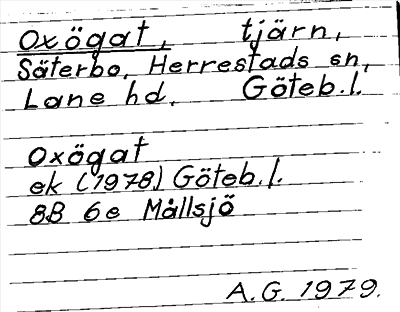 Oxögat, tjärn,
Säterbo, Herrestads sn,
Lane hd, Göteb.l.
Oxögat
ek (1978) Göteb.l.
8B 6e Mållsjö
A.G. 1979.